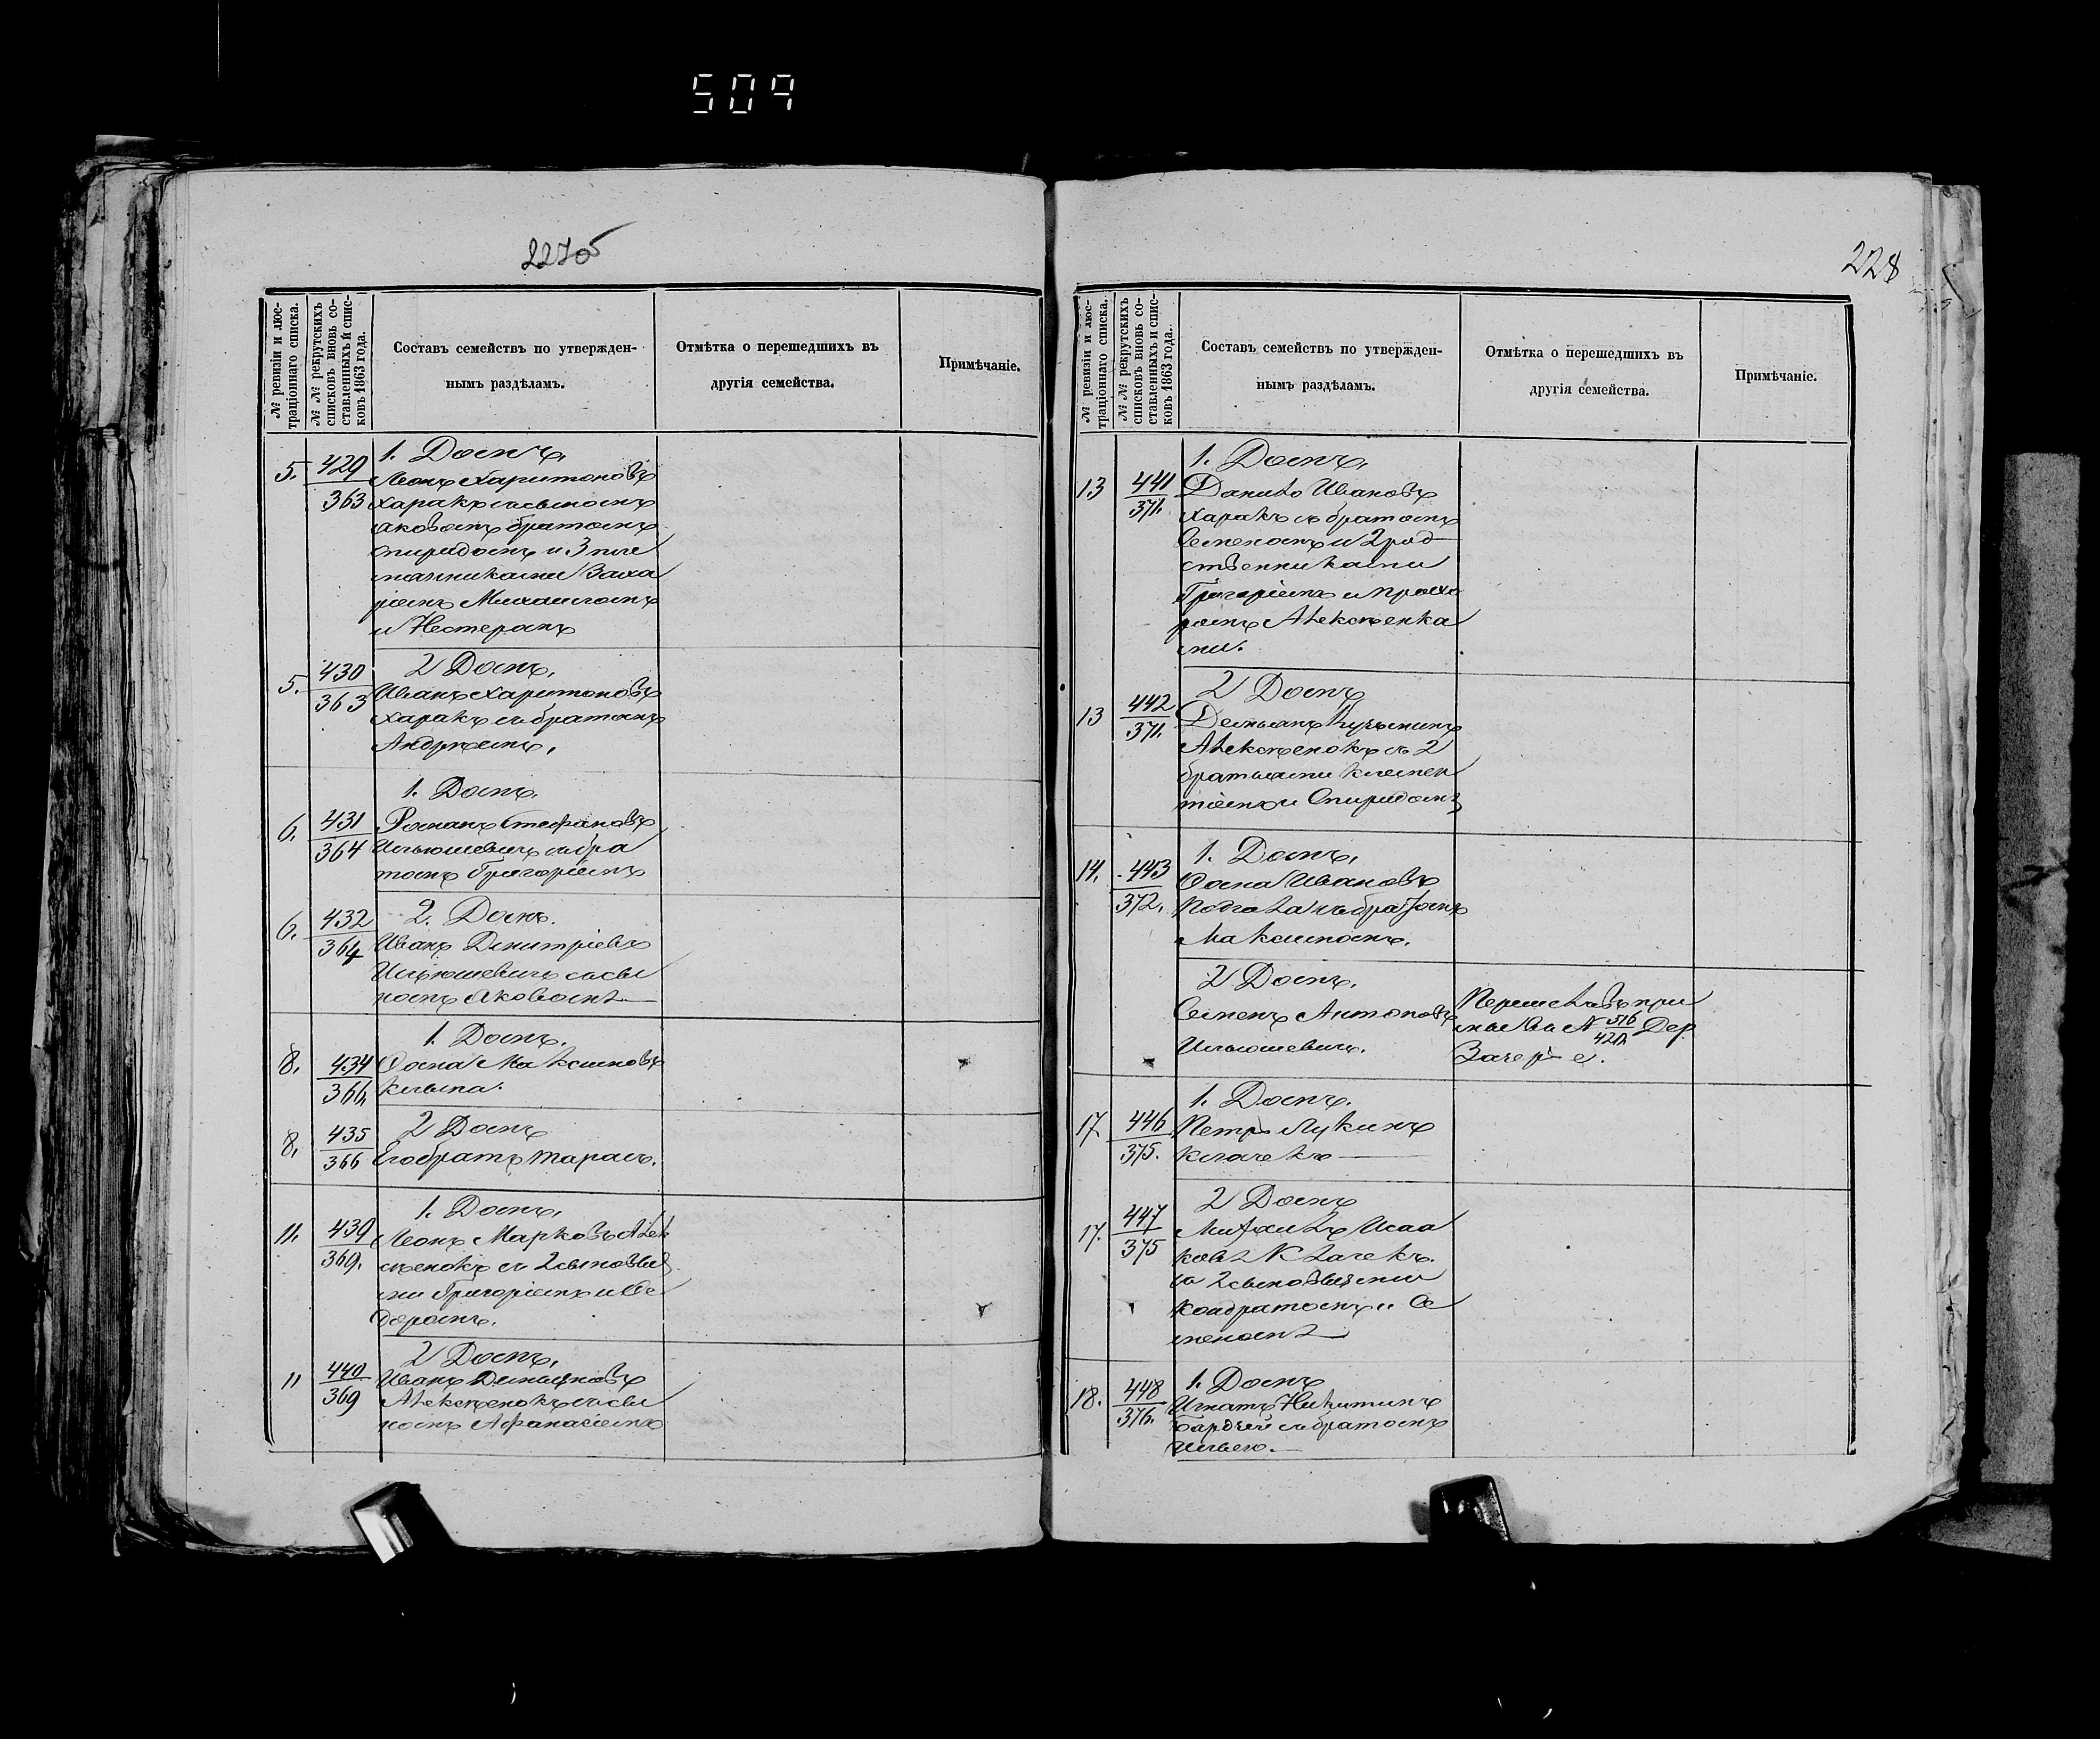 509
227об
№ ревизіи и люс-
траціоннаго списка.
№ № рекрутскихъ
списковъ вновь со-
ставленныхъ и спис-
ковъ 1863 года.
Составъ семействъ по утвержден-
нымъ раздѣламъ.
Отмѣтка о перешедшихъ въ
другія семейства.
Примѣчаніе.
5. 429 1. Домъ,
Леонъ Харитоновъ
363 Харакъ съ сыномъ
Яковомъ братомъ
Спиридомъ и 3 пле
мянниками Заха
ріемъ Михаиломъ
и Нестеромъ
5. 430 2 Домъ,
363 Иванъ Харитоновъ
Харакъ съ братомъ
Андреемъ,
1. Домъ.
6. 431 Романъ Стефановъ
364 Ильюшевичъ съ бра
томъ Григоріемъ
6. 432 2. Домъ.
364 Иванъ Дмитріевъ
Ильюшевичъ съ сы
номъ Яковомъ
1. Домъ.
8. 434 Фома Максимовъ
366.
8. 435 2 Домъ
366 Его братъ Тарасъ.
1. Домъ,
11. 439 Леонъ Марковъ Алек
369. сѣенокъ съ 2 сыновья
ми Григоріемъ и Фе
доромъ.
2 Домъ,
11 440 Иванъ Демьяновъ
369 Алексѣенокъ съ сы
номъ Афанасіемъ
228
№ ревизіи и люс-
траціоннаго списка.
№ № рекрутскихъ
списковъ вновь со-
ставленныхъ и спис-
ковъ 1863 года.
Составъ семействъ по утвержден-
нымъ раздѣламъ.
Отмѣтка о перешедшихъ въ
другія семейства.
Примѣчаніе.
1. Домъ,
13 441 Данило Ивановъ
371. Харакъ съ братомъ
Семеномъ и 2 род
ственниками
Григоріемъ и Прохо
ромъ Алексѣенка
ми.
2 Домъ
13 442 Демьянъ Кузьминъ
371. Алексѣенокъ съ 2
братьями Клемен
тіемъ и Спиридомъ
1. Домъ,
14. 443 Фома Ивановъ
372. съ братомъ
Максимомъ.
2 Домъ,
Семенъ Антоновъ
Ильюшевичъ.
Перешелъ въ при
№ 516 Дер.
420
1. Домъ.
17. 446 Петръ Лукинъ
375. Клочекъ
2 Домъ
17. 447 Михаилъ Исаа
375 ковъ Клочекъ
съ 2 сыновьями
Кондратомъ и Се
меномъ
1. Домъ
18. 448 Игнатъ Никитинъ
376. съ братомъ
Ильею.